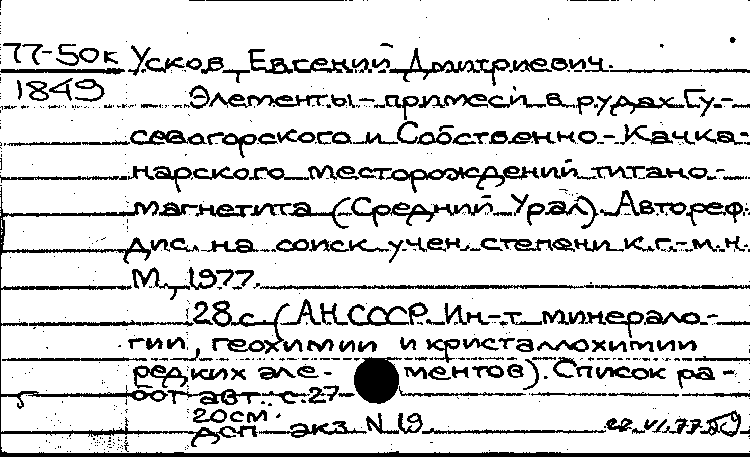 77-50к Усков, Евгений Дмитриевич.
1849
Элементы-примеси в рудах Гу-
севогорского и Собственно-Качка-
нарского месторождений титано-
магнетита (Средний Урал). Автореф.
дис. на соиск. учен. степени к.г.-м.н.
М., 1977.
28 с. (АН СССР. Ин-т минерало-
гии, геохимии и кристаллохимии
редких эле- ментов). Список ра-
бот авт.: с. 27
20 см.
ДСП экз. N 19.